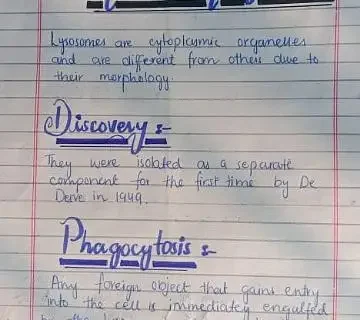 Lysosomes are cytoplasmic organelles
and are different from others due to
their morphology.
Discovery :-
They were isolated as a separate
component for the first time by De
Derve in 1949.
Phagocytosis :-
Any foreign object that gains entry
into the cell is immediately engulfed